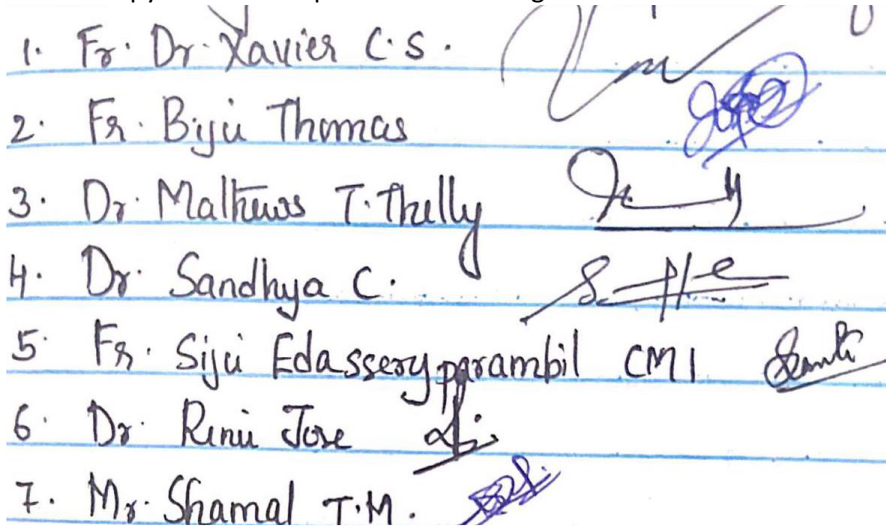 1. Fr. Dr. Xavier C.S.
2. Fr. Biju Thomas
3. Dr. Mathews T. Thelly
4. Dr. Sandhya C.
5. Fr. Siju Edassery parambil CMI
6. Dr. Rinu Jose
7. Mr. Shamal T.M.